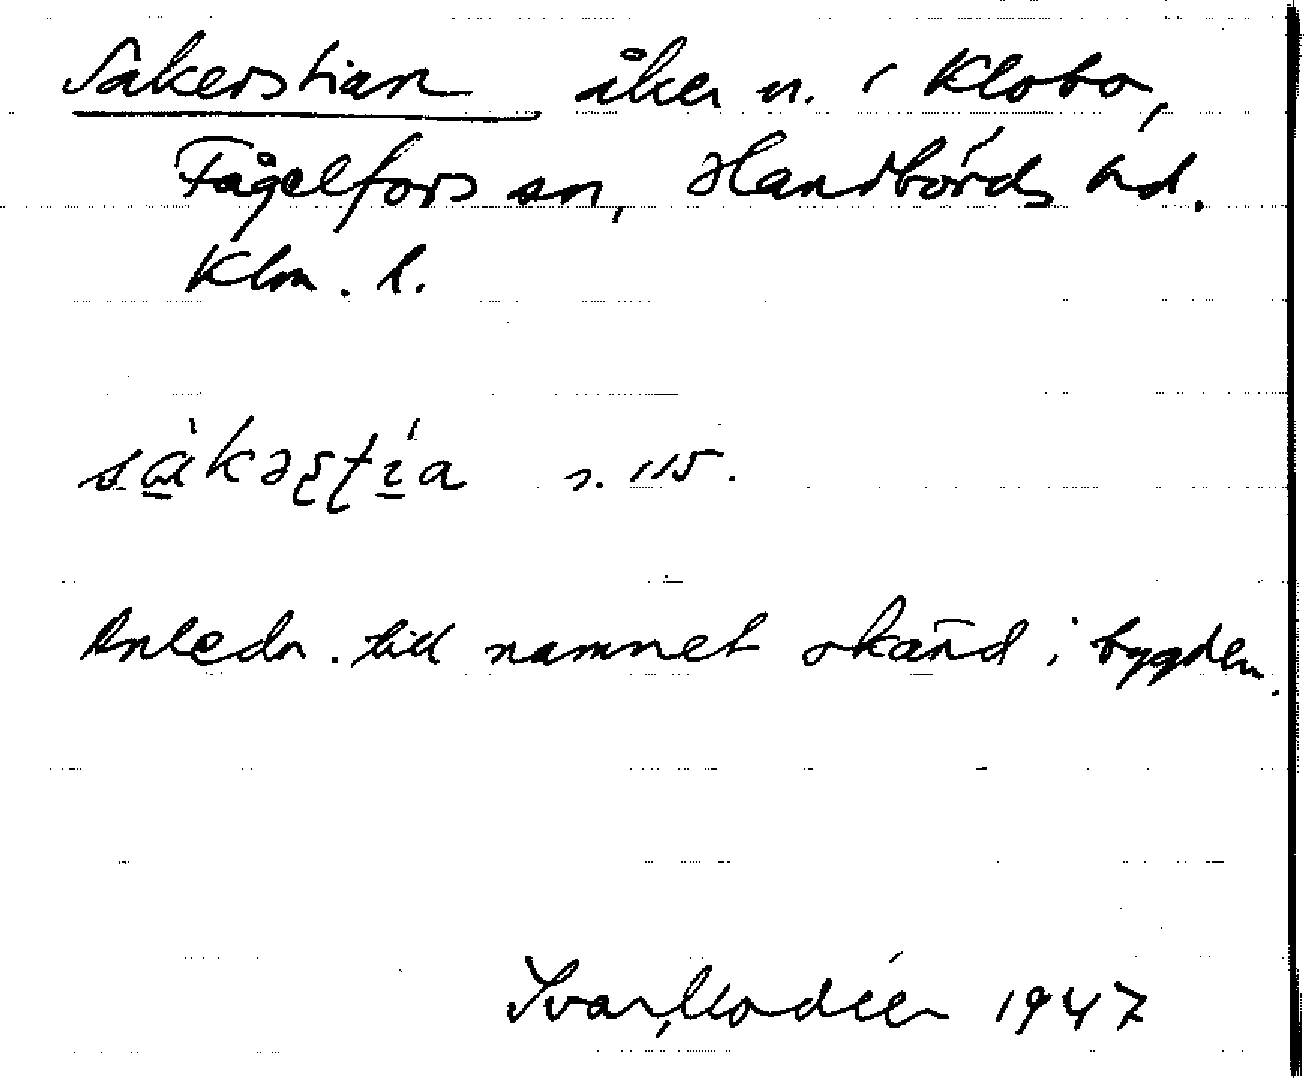 Sakerstian åker n. i Klobo,
Fågelfors sn, Handbörds hd.
Klm. l.
sàkəʂʈí̠a s. 115.
Anledn. till namnet okänd i bygden.
Ivar Modéer 1947